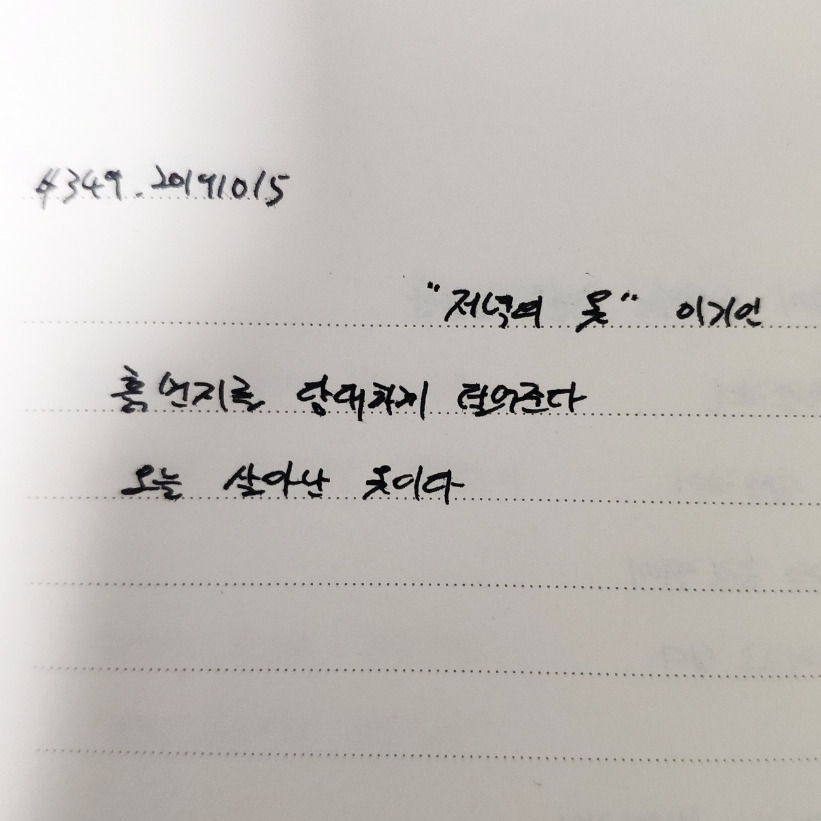 #349. 20191015
"저녁의 옷" 이기인
흙먼지를 담대하게 털어준다
오늘 살아난 옷이다